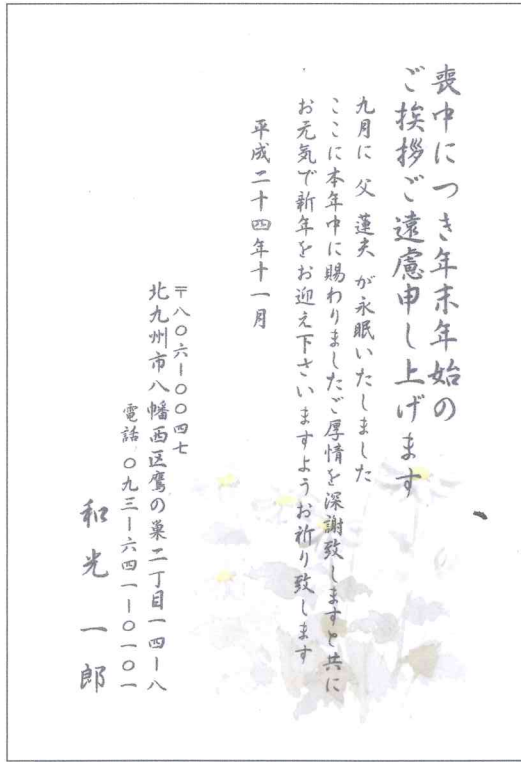 喪中につき年末年始の
ご挨拶ご遠慮申し上げます
九月に 父 蓮夫 が永眠いたしました
ここに本年中に賜わりましたご厚情を深謝致しますと共に
お元気で新年をお迎え下さいますようお祈り致します
平成二十四年十一月
〒八〇六ー〇〇四七
北九州市八幡西区鷹の巣二丁目一四ー八
電話 〇九三ー六四一ー〇一〇一
和光 一郎